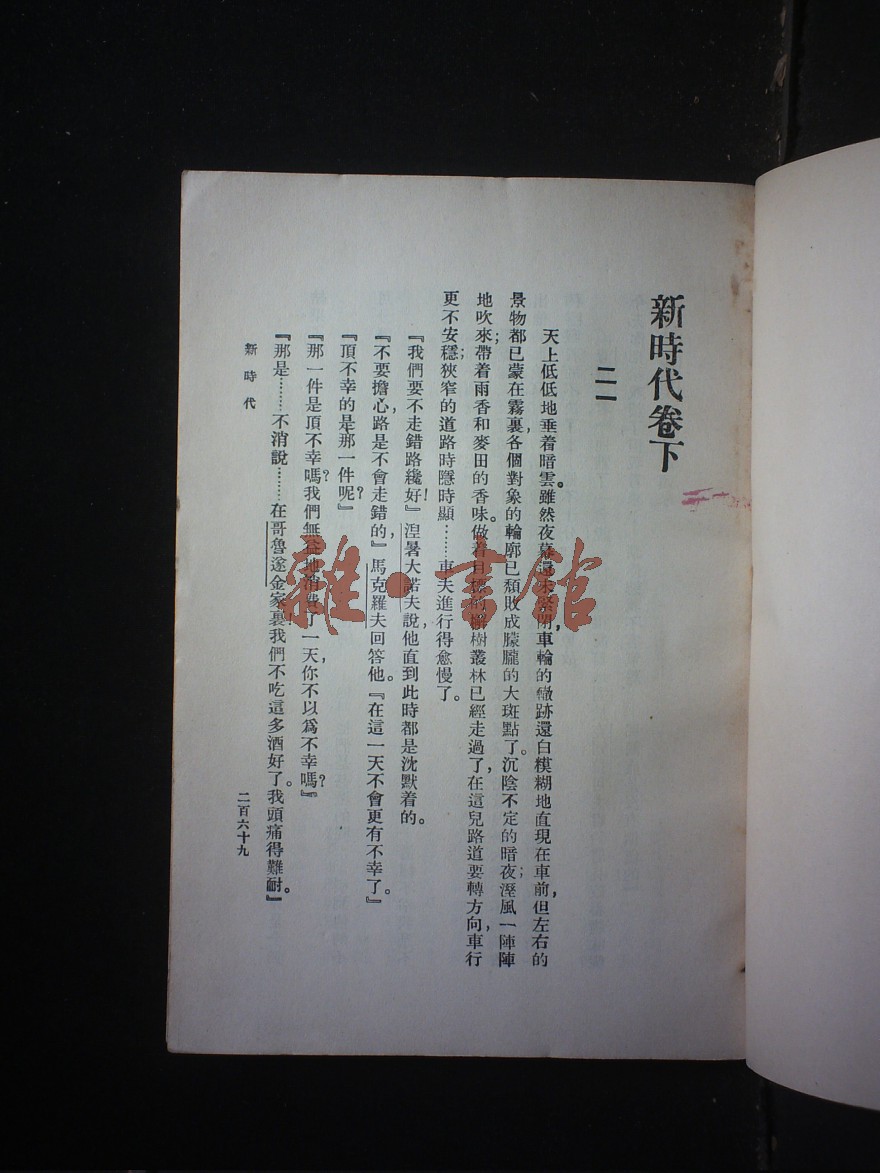 新時代卷下
二一
天上低低地垂着暗雲。雖然夜幕還未緊閉,車輪的轍跡還白模糊地直現在車前,但左右的
景物都已蒙在霧裏,各個對象的輪廓已頹敗成朦朧的大斑點了。沉陰不定的暗夜;溼風一陣陣
地吹來;帶着雨香和麥田的香味。做着目標的檞樹叢林已經走過了,在這兒路道要轉方向,車行
更不安穩;狹窄的道路時隱時顯……車夫進行得愈慢了。
『我們要不走錯路纔好!』涅暑大諾夫說,他直到此時都是沈默着的。
『不要擔心,路是不會走錯的,』馬克羅夫回答他。『在這一天不會更有不幸了。』
『頂不幸的是那一件呢?』
『那一件是頂不幸嗎?我們無益地消費了一天,你不以爲不幸嗎?』
『那是……不消說……在哥魯遂金家裏!我們不吃這多酒好了。我頭痛得難耐。』
新時代
二百六十九
雜·書館